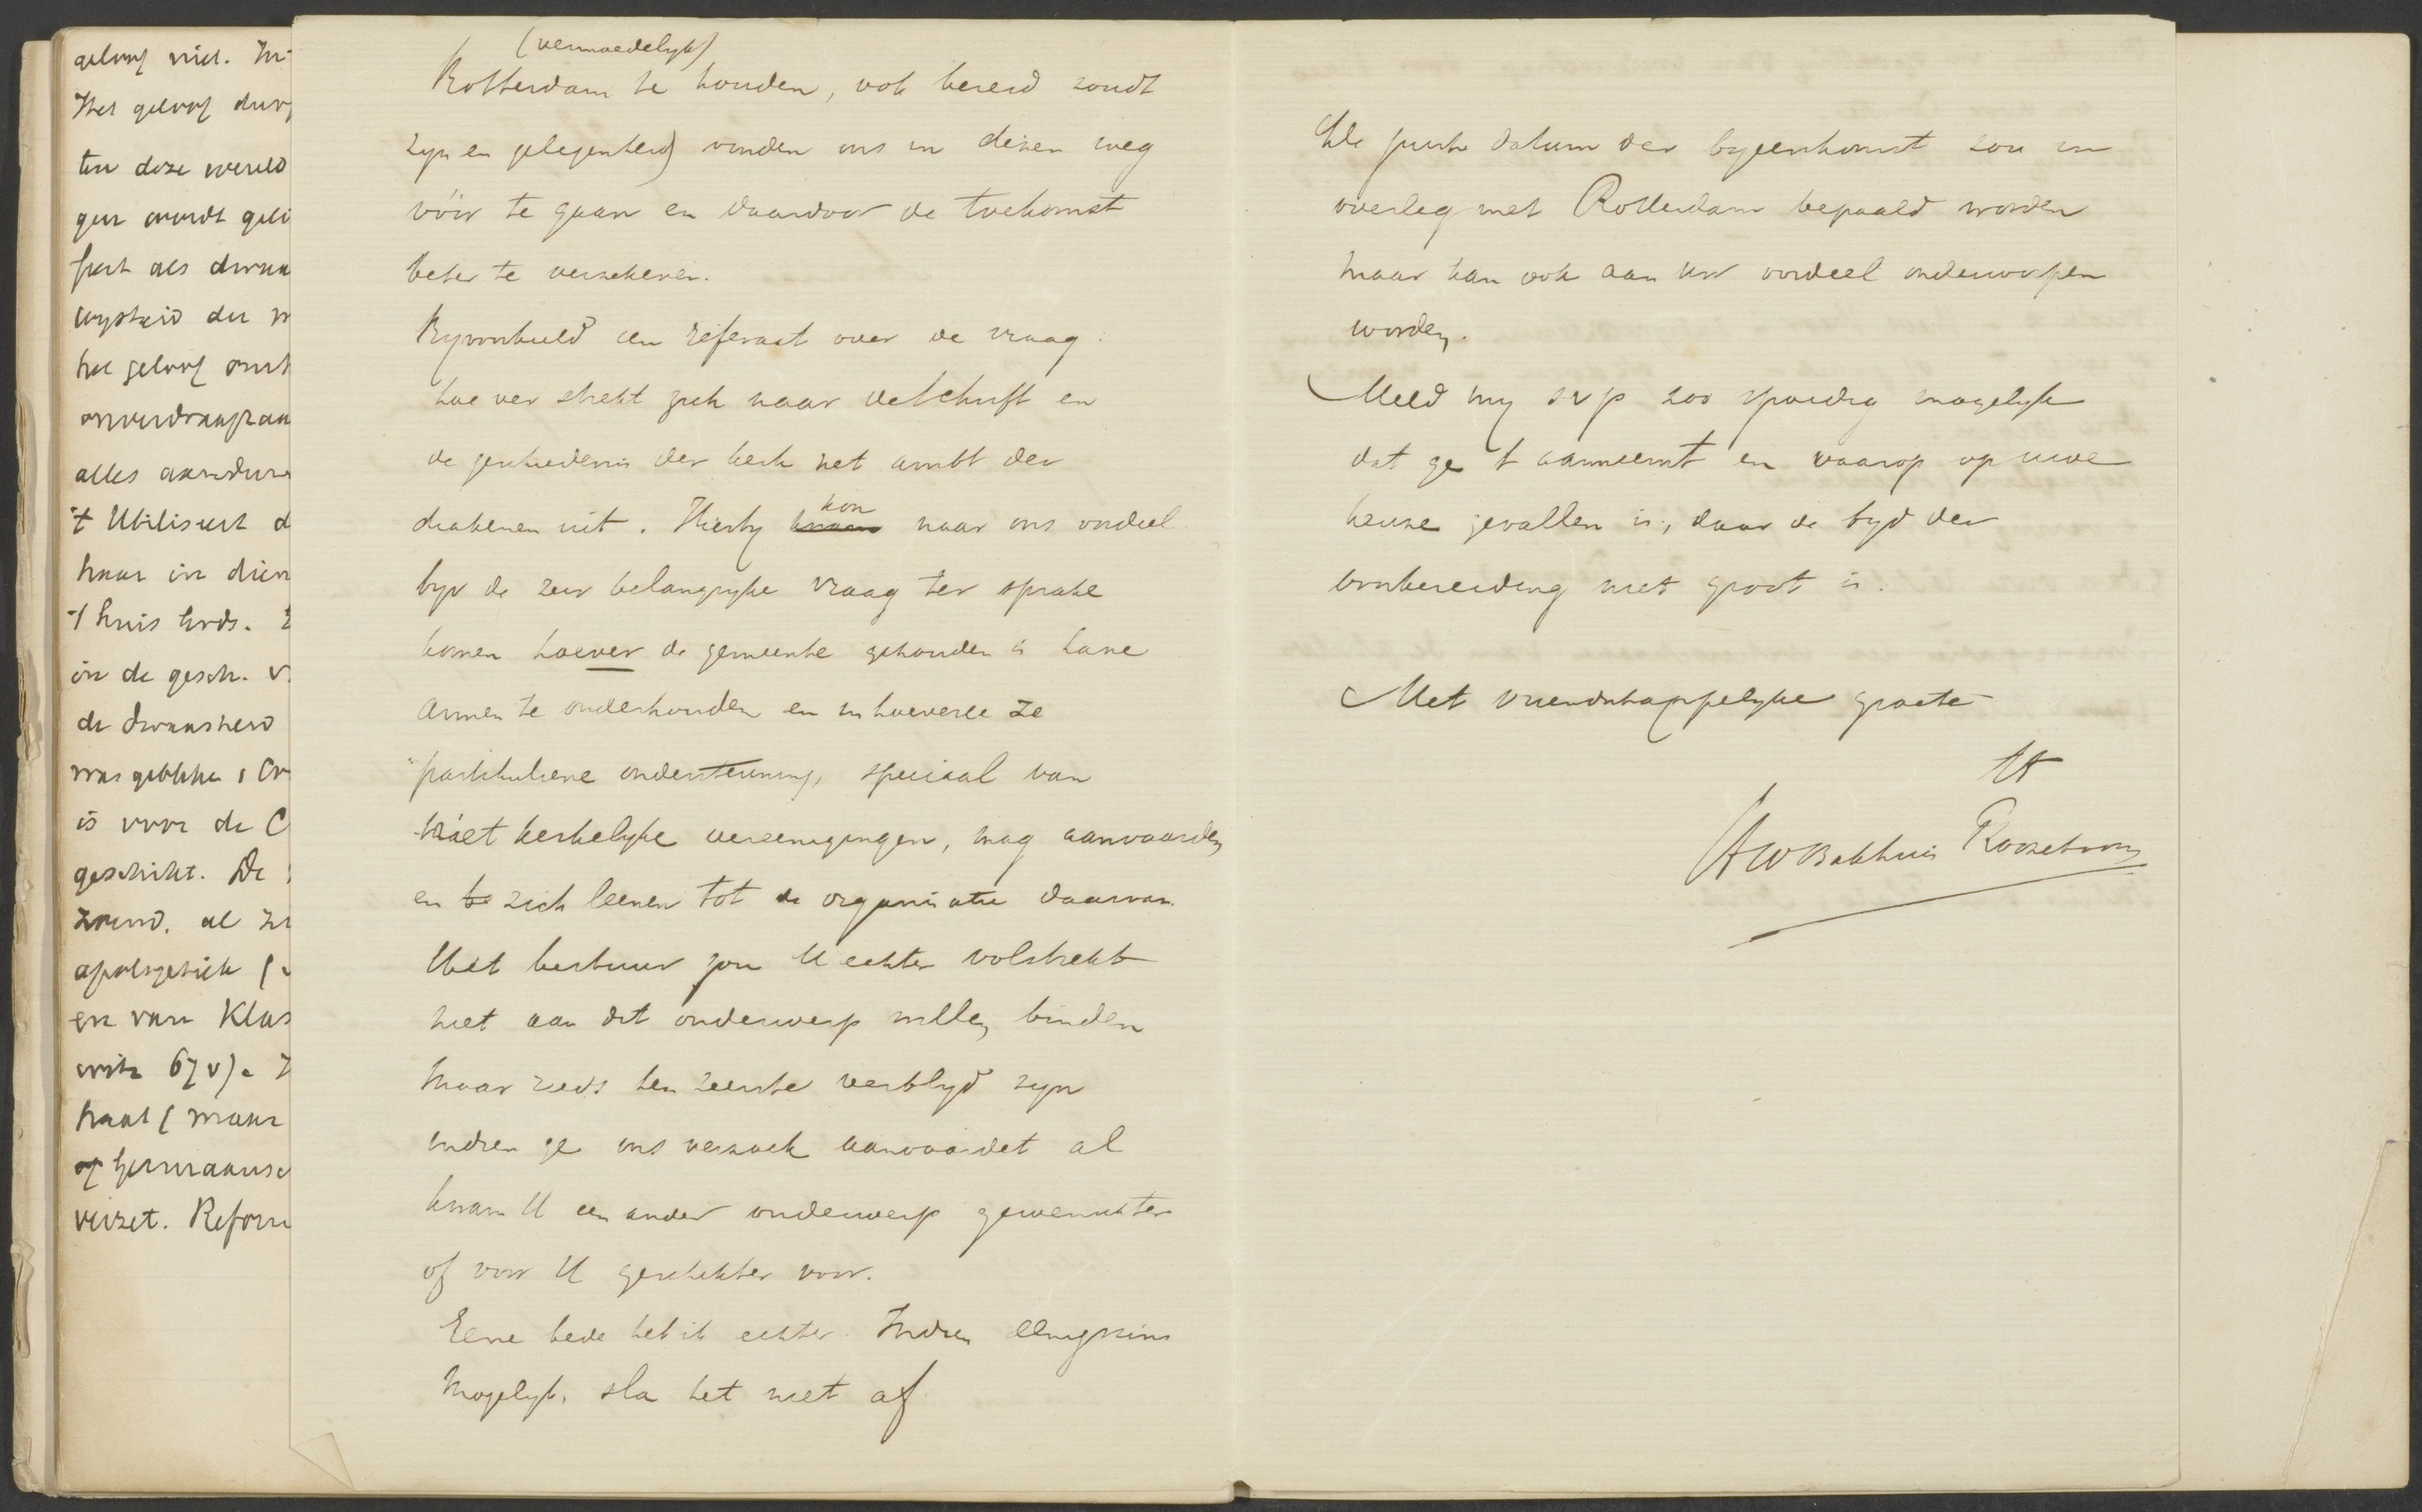 geloof niet. In
Het geloof durf
ten deze wereld
gen wordt geli
feest als dwaa
wijsheid der w
het geloof omt
onverdraagzaa
alles aandure
't Utiliseert d
haar in dien
't huis Gods.
in de gesch. v.
de dwaasheid
was gebleken
is voor de C
geschikt. De
zoend. al
apologetiek
en van Klas
67 v).
haat ( maar
of Germaansc
verzet. Reform
(vermoedelyk)
Rotterdam te houden, ook bereid zoudt
zyn en gelegenheid vinden ons in dezen weg
vóór te gaan en daardoor de toekomst
beter te verzekeren.
Byvoorbeeld een referaat over de vraag:
hoe ver strekt zich naar de Schrift en
de geschiedenis der kerk het ambt der
diakenen uit. Hierby kon naar ons oordeel
byv de zeer belangryke vraag ter sprake
komen hoever de gemeente gehouden is hare
armen te onderhouden en in hoeverre ze
partikuliere ondersteuning, speciaal van
niet kerkelyke vereenigingen, mag aanvaarden
en te zich leenen tot de organisatie daarvan.
Het bestuur zou U echter volstrekt
niet aan dit onderwerp willen binden
maar reeds ten zeerste verblyd zyn
indien ge ons verzoek aanvaardet al
kwam U een ander onderwerp gewenschter
of voor U geschikter voor.
Eene bede heb ik echter. Indien eenigszins
mogelyk, sla het niet af.
De juiste datum der byeenkomst zou in
overleg met Rotterdam bepaald worden
maar kan ook aan Uw oordeel onderworpen
worden.
Meld my svp zoo spoedig mogelyk
dat ge 't aanneemt en waarop op uwe
keuze gevallen is, daar de tyd der
voorbereiding niet groot is.
Met vriendschappelyke groete
tt
HWBakhuis Roozeboom